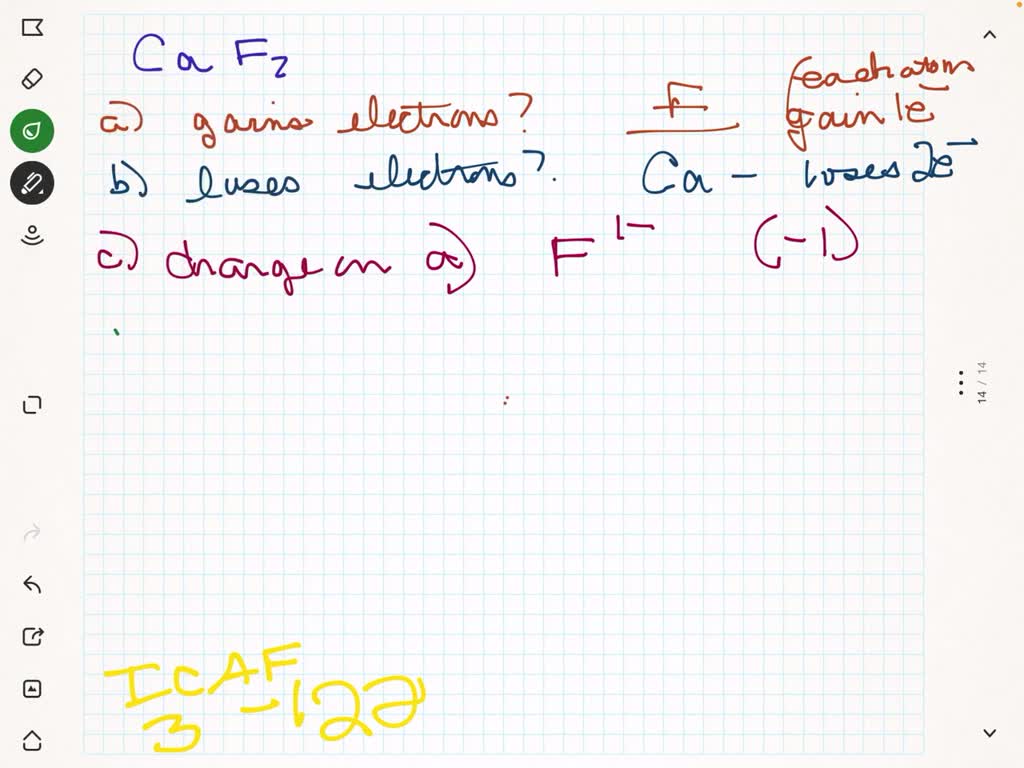 CaF₂
a) gains electrons? F each atom gain 1e⁻
b) loses electrons? Ca – loses 2e⁻
c) charge on a) F¹⁻ (-1)
14 / 14
ICAF
3 -122